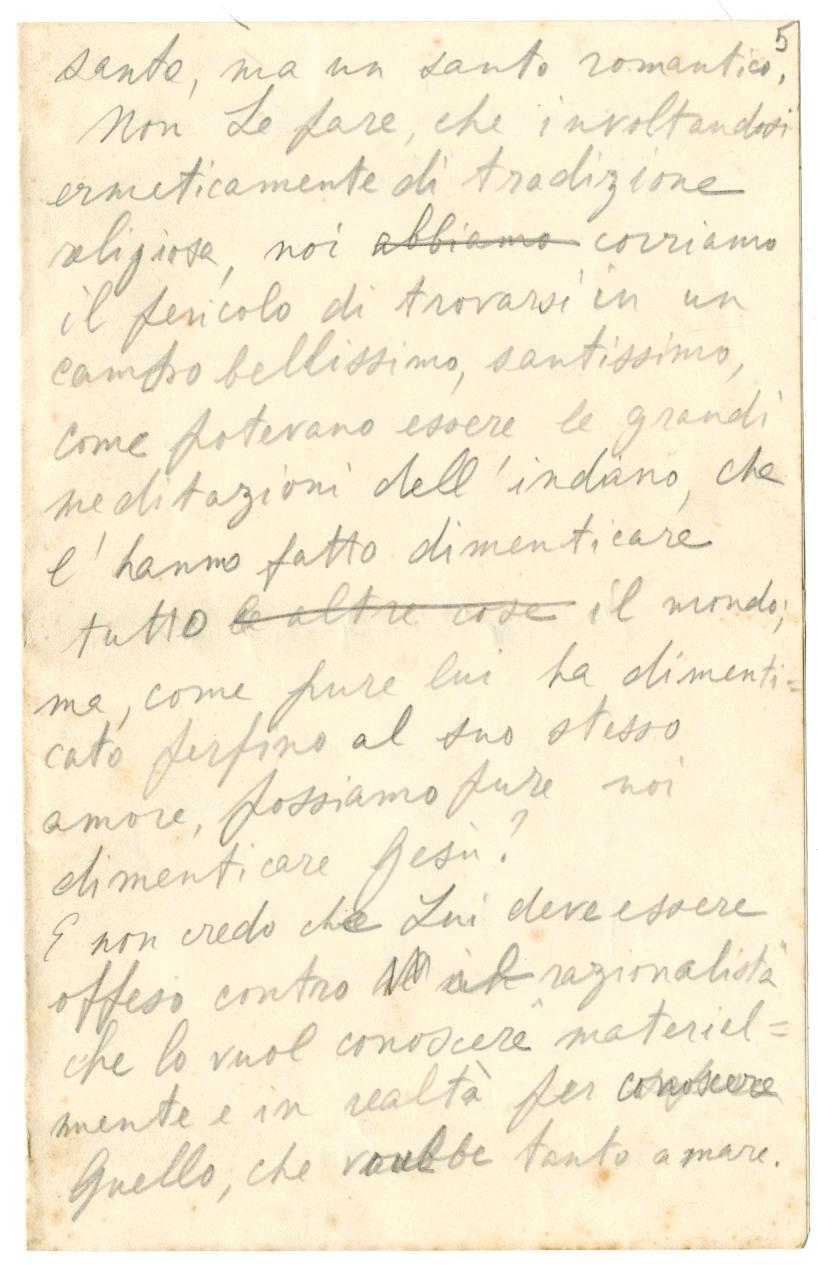 5
santo, ma un santo romantico,
Non Le pare, che involtandosi
ermeticamente di tradizione
religiosa, noi abbiamo corriamo
il pericolo di trovarsi in un
campo bellissimo, santissimo,
come potevano essere le grandi
meditazioni dell'indano, che
l'hanno fatto dimenticare
tutto le altre cose il mondo;
ma, come pure lui ha dimenti=
cato perfino al suo stesso
amore, possiamo pure noi
dimenticare Gesù?
E non credo che Lui deve essere
offeso contro razionalista
che lo vuol conoscere materiel=
mente e in realtà per conoscere
Quello, che tanto amare.